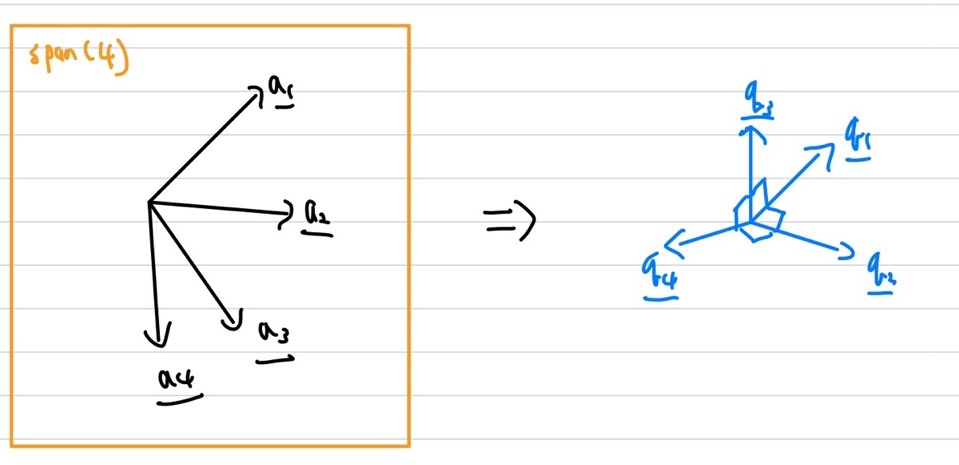 span(4)
a₁
a₂
a₃
a4
⇒
q₃
q₁
q₄
q₂